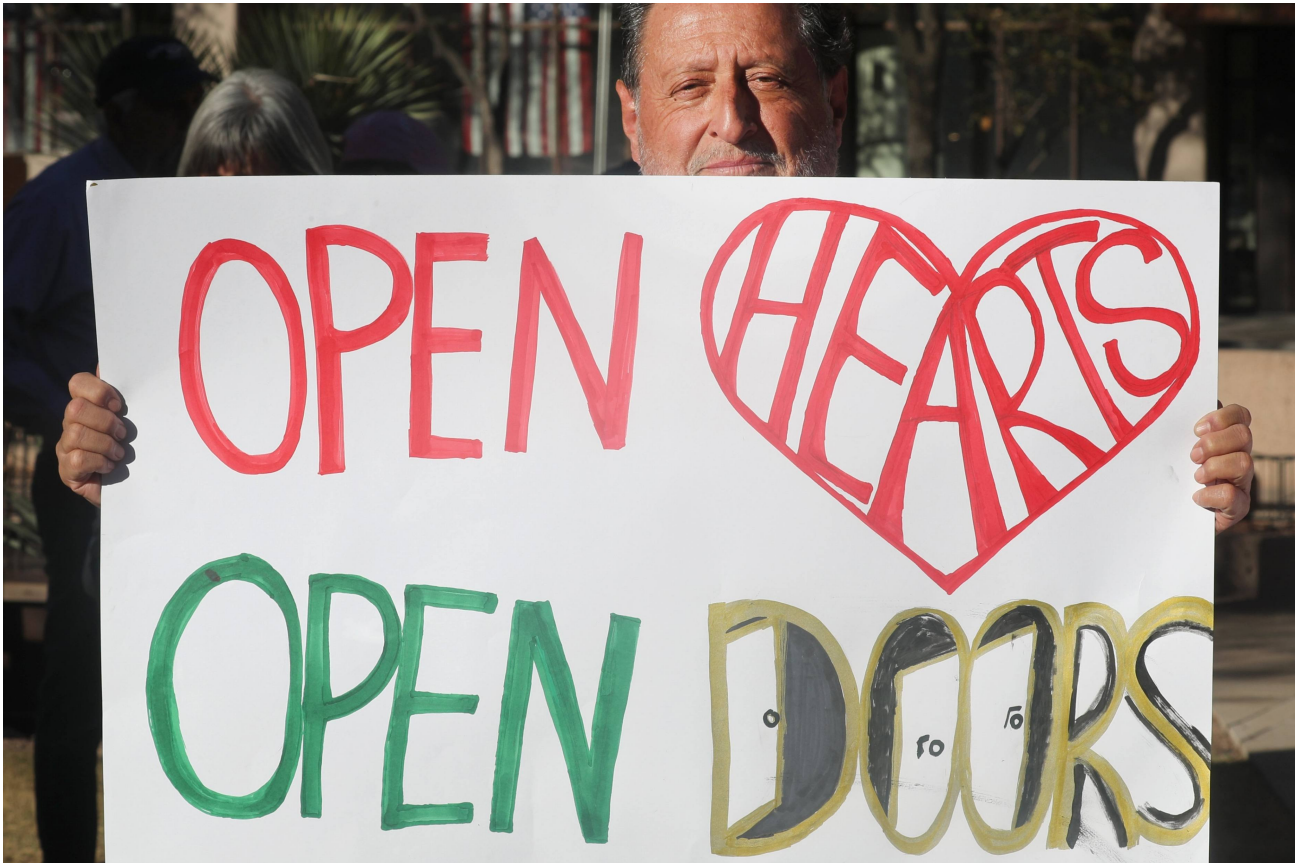 OPEN HEARTS
OPEN DOORS